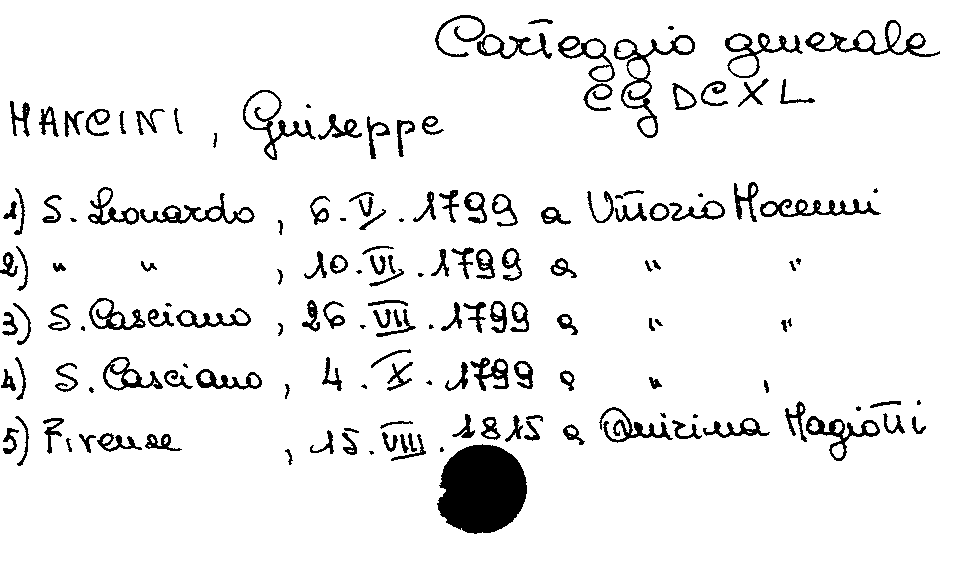 Carteggio generale
CG DCXL
MANCINI, Giuseppe
1) S. Leonardo, 6.V.1799 a Vittorio Mocenni
2) " " , 10.VI.1799 a " "
3) S. Casciano, 26.VII.1799 a " "
4) S. Casciano, 4.X.1799 a " '
5) Firenze , 15.VIII.1815 a Quirina Magiotti